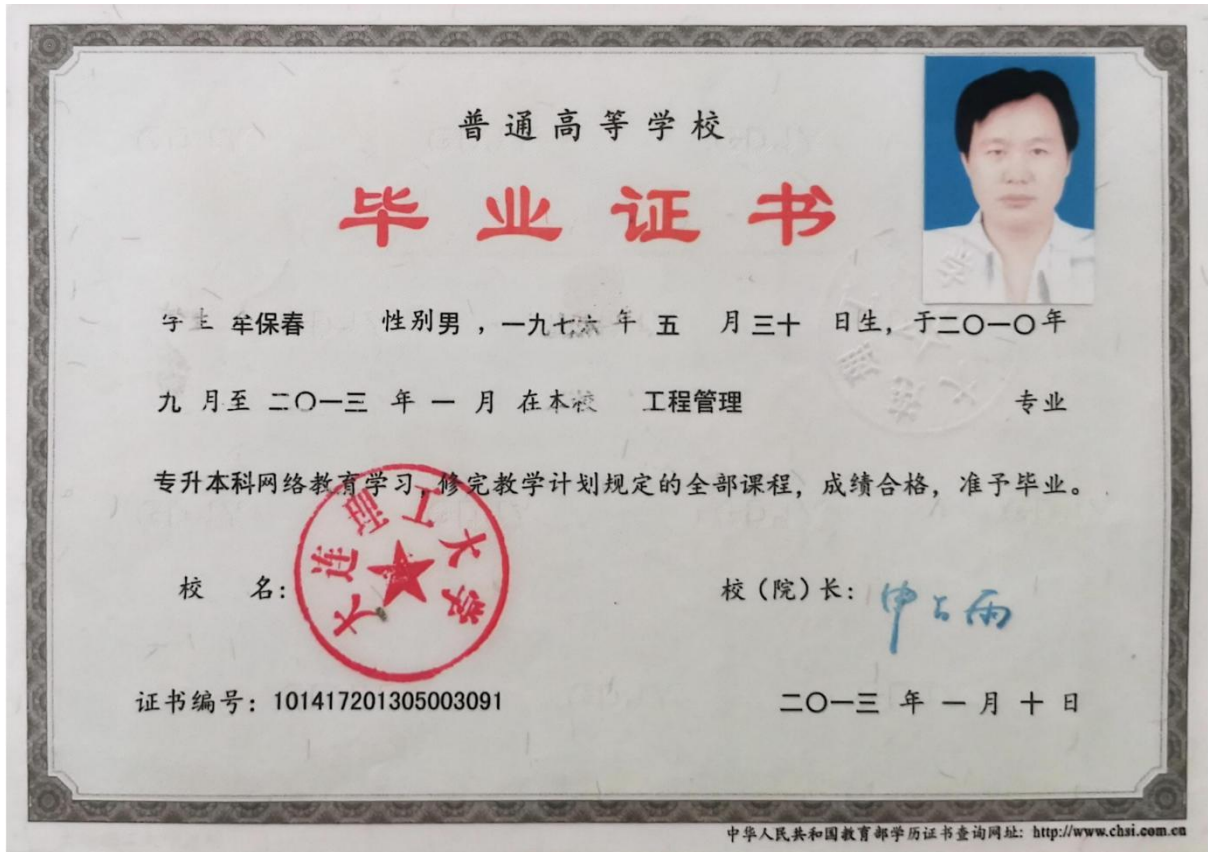 普通高等学校
毕业证书
学生 牟保春 性别男，一九七六年 五 月三十 日生，于二〇一〇年
九 月至 二〇一三 年 一 月 在本校 工程管理 专业
专升本科网络教育学习，修完教学计划规定的全部课程，成绩合格，准予毕业。
校 名： 校（院）长：
大连理工大学
证书编号：101417201305003091 二〇一三 年 一 月 十 日
中华人民共和国教育部学历证书查询网址：http://www.chsi.com.cn